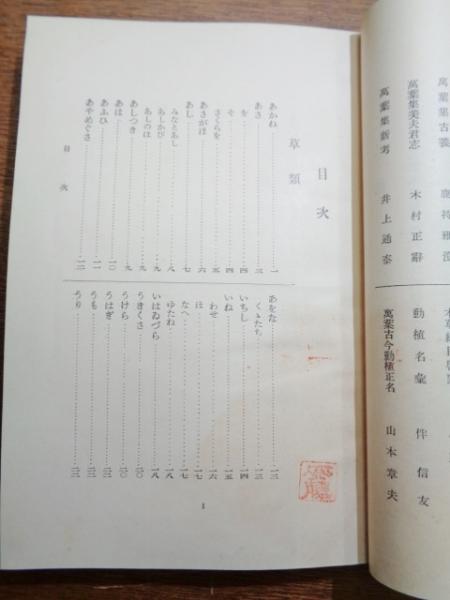 萬葉集古義 鹿持雅澄
萬葉集美夫君志 木村正辭
萬葉集新考 井上通泰
動植名彙 伴信友
萬葉古今動植正名 山本章夫
目次
草類
あかね 一
あさ 三
を 四
そ 四
さくらを
あさがほ 六
あし
みなとあし 八
あしかび 九
あしのほ 九
あしつき 九
あは 一〇
あふひ 一一
あやめぐさ 一二
あをな 一三
くゝたち 一三
いちし 一四
いね 一五
わせ 一六
ほ 一七
なへ 一七
ゆたね 一八
いはゐづら 一八
うきくさ 二〇
うけら 二〇
うはぎ
うも
うり
目次
1